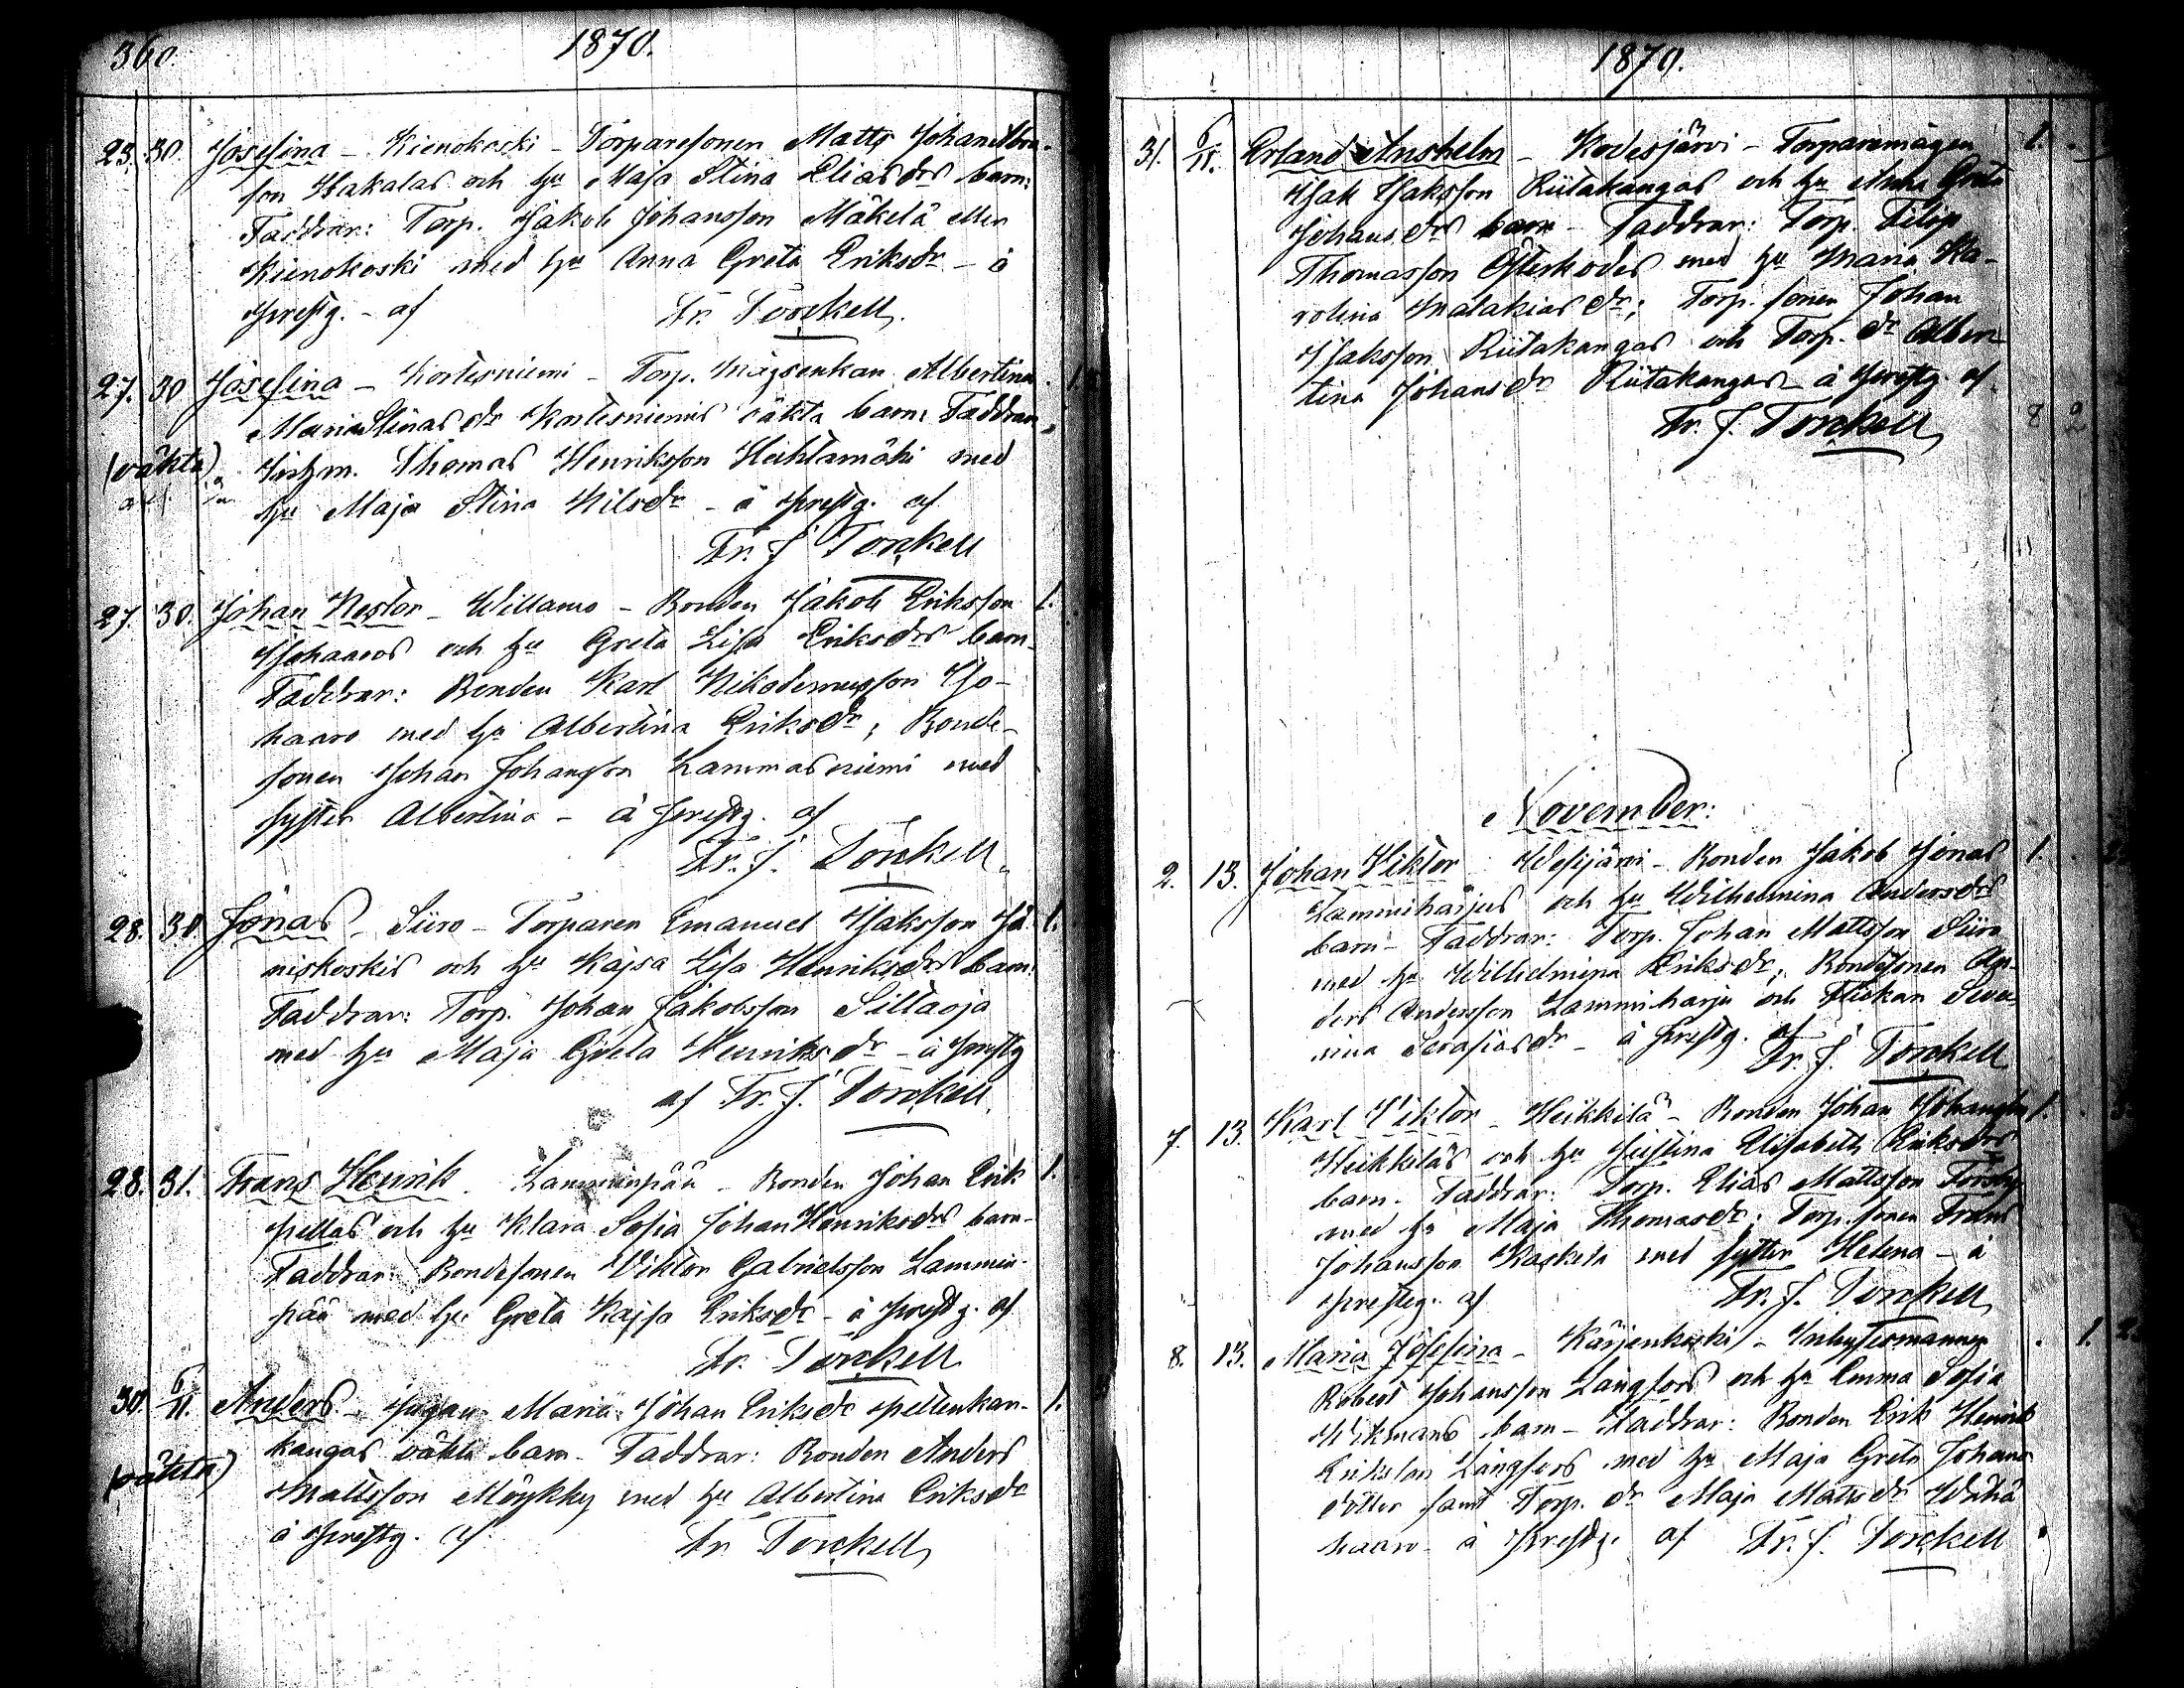 360
1870.
23. 30. Josefina – Kienokoski – Torparesonen Matts Johan Abra-
son Hakalas och hu Maja Stina Eliasdrs barn.
Faddrar: Torp. Jakob Johansson Mäkelä eller
Kienokoski med hu Anna Greta Eriksdr – å
prestg. – af Fr. Torckell.
27. 30 Josefina – Kortesniemi – Torp. Albertina
Maria Stinasdr Kortesniemis oäkta barn. Faddrar,
(oäkta) Thomas Henriksson med
hu Maja Stina Nilsdr – å prestg. af
Fr. J. Torckell
27. 30. Johan Nestor – Willamo – Bonden Jakob Eriksson 1.
och hu Greta Lisa Eriksdrs barn –
Faddrar: Bonden Karl Nikodemusson Yjo-
haaro med hu Albertina Eriksdr; Bonde-
sonen Johan Johansson Lammasniemi med
syster Albertina – å prestg. af
Fr. J. Torckell.
28. 30 Jonas – Siiro – Torparen Emanuel Isaksson Jä- 1.
niskoskis och hu Kajsa Lisa Henriksdrs barn.
Faddrar: Torp. Johan Jakobsson Sillaoja
med hu Maja Greta Henriksdr – å prestg
af Fr. J. Torckell.
28. 31. Frans Henrik. Lamminpää – Bonden Johan Erik 1.
spellas och hu Klara Sofia Johan Henriksdrs barn –
Faddrar: Bondesonen Viktor Gabrielsson Lammin-
pää med hu Greta Kajsa Eriksdr – å prestg. af
Fr. Torckell
30. 6/11. Anders – pigan Maria Johan Eriksdr 1.
kangas oäkta barn – Faddrar: Bonden Anders
(oäkta) Mattsson Möykky med hu Albertina Eriksdr
å prestg. af Fr. Torckell
1870.
31. 6/11. Erland Anshelm – Kodesjärvi – Torparemågen 1.
Isak Isaksson Riitakangas och hu Anna Greta
Johansdrs barn – Faddrar: Torp. Filip
Thomasson Österkodes med hu Maria Ka-
rolina Malakiasdr; Torp. sonen Johan
Isaksson Riitakangas och Torp. dr Alber-
tina Johansdr Riitakangas – å prestg. af
Fr. J. Torckell
8 2
November:
2. 13. Johan Viktor Wesijärvi – Bonden Jakob Jonas 1.
Lammiharjus och hu Wilhelmina Andersdrs
barn – Faddrar: Torp. Johan Mattsson Siiro
med hu Wilhelmina Eriksdr; Bondesonen An-
ders Andersson Lammiharju och Flickan Seve-
rina Serafiasdr – å prestg. af Fr. J. Torckell
7. 13. Karl Viktor – Heikkilä – Bonden Johan Johansson 1.
Heikkiläs och hu Justina Elisabeth Eriksdrs
barn – Faddrar: Torp. Elias Mattsson Forsby
med hu Maja Thomasdr; Torp. sonen Frans
Johansson Kaskela med syster Helena – å
presteg. af Fr. J. Torckell
8. 13. Maria Josefina – Kärjenkoski – Inhysesmannen . 1.
Robert Johansson Långfors och hu Emma Sofia
Wikmans barn – Faddrar: Bonden Erik Henrik
Eriksson Långfors med hu Maja Greta Johans-
dotter samt Torp. dr Maja Mattsdr Wähä
haaro – å prestg. af Fr. J. Torckell